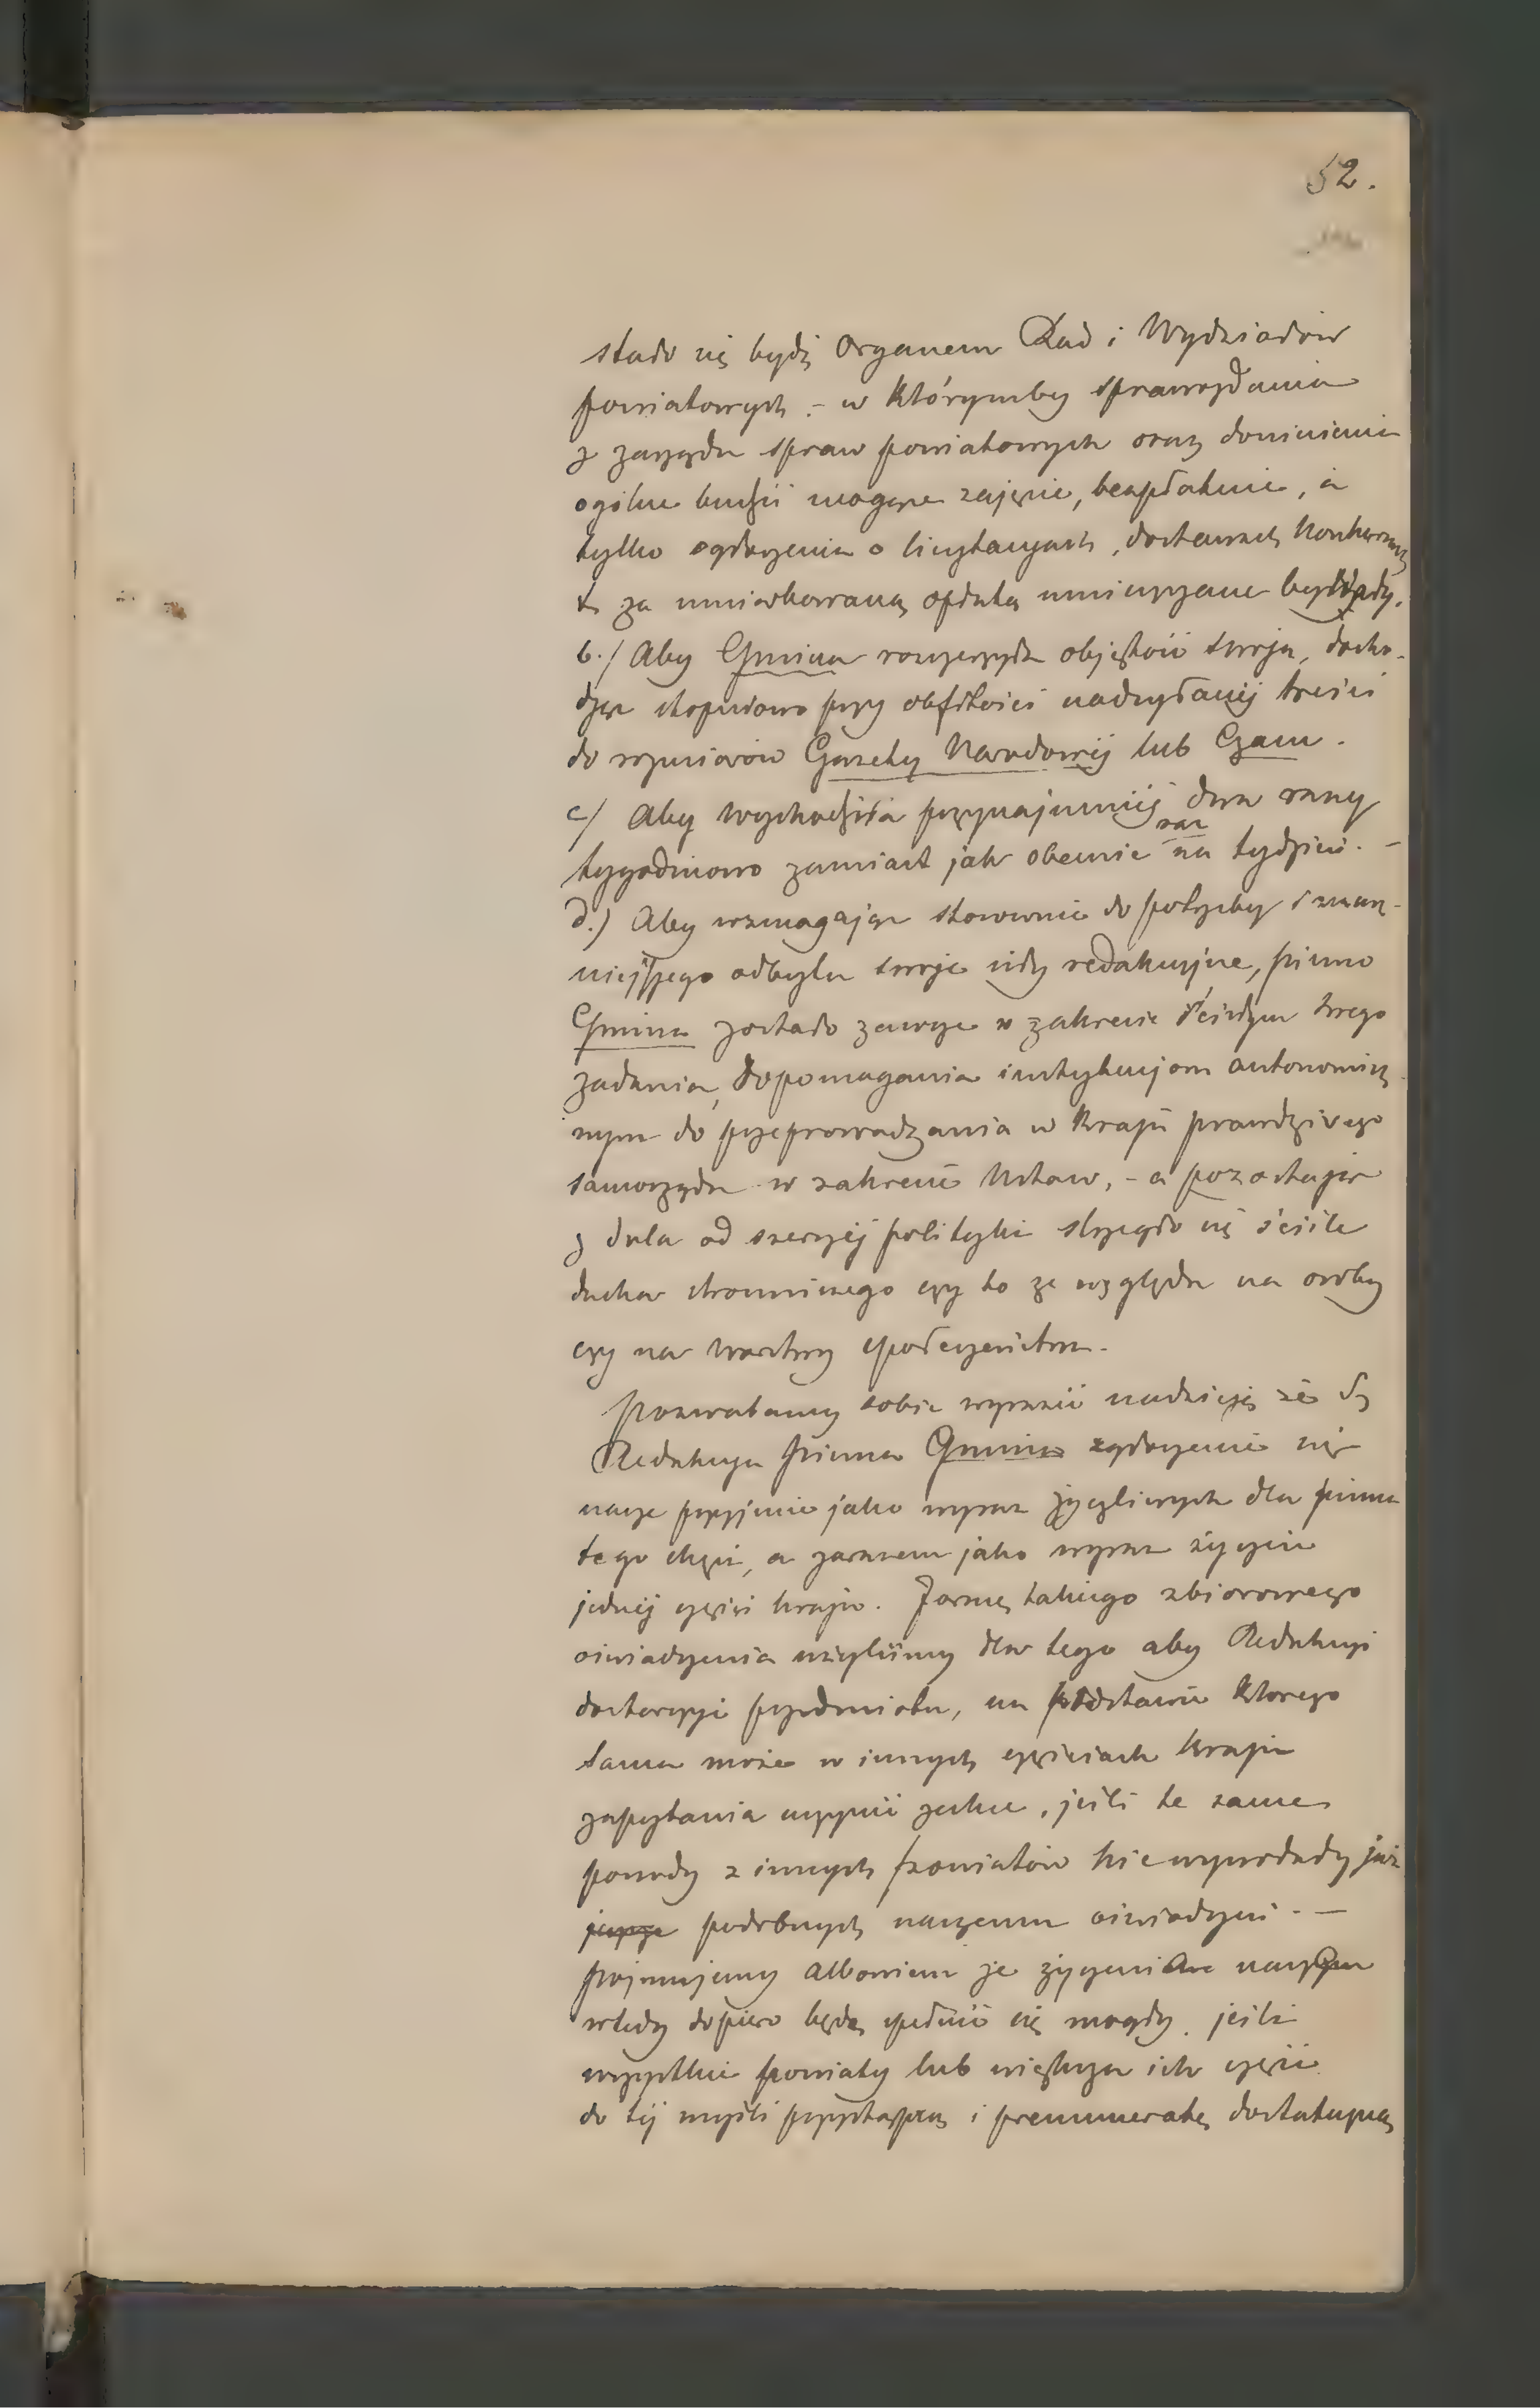 52.
stało się być Organem Rad i Wydziałów
powiatowych. – w którymby sprawozdania
z zarządu spraw powiatowych oraz doniesienia
ogólne budzić mogące zajęcie, bezpłatnie, a
tylko ogłoszenia o licytacyach, dostawach, Konkursach
za umiarkowaną opłatą umieszczane były.
b./ Aby Gmina rozszerzyła objętość swoją, docho-
dząc stopniowo przy obfitości nadsyłanéj treści
do rozmiarów Gazety Narodowéj lub Czasu.
c/ Aby wychodziła przynajmniéj dwa razy
tygodniowo zamiast jak obecnie raz na tydzień. –
d.) Aby wzmagając stosownie do potrzeby i znacz-
niejszego odbytu swoje siły redakcyjne, pismo
Gmina zostało zawsze w zakresie ścisłym swego
zadania, dopomagania instytucjom autonomicz-
nym do przeprowadzania w Kraju prawdziwego
samorządu w zakresie Ustaw, – a pozostając
z dala od szerszéj polityki strzegło się ściśle
ducha stronniczego czy to ze względu na osoby
czy na warstwy społeczeństwa.
Pozwalamy sobie wyrazić nadzieję że
Redakcya pisma Gmina zgłoszenie się
nasze przyjmie jako wyraz życzliwych dla pisma
tego chęci, a zarazem jako wyraz życzeń
jednéj części kraju. Formę takiego zbiorowego
oświadczenia użyliśmy dla tego aby Redakcyi
dostarczyć przedmiotu, na podstawie którego
sama może w innych częściach Kraju
zapytania uczynić zechce, jeśli te same
powody z innych powiatów nie wywołały już
jeszcze podobnych naszemu oświadczeń. –
Pojmujemy albowiem że życzenia nasze
wtedy dopiero będą spełnić się mogły, jeśli
wszystkie powiaty lub większa ich część
do téj myśli przystąpią i prenumeratę dostateczną